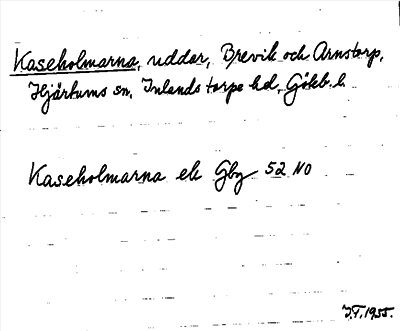 Kaseholmarna, uddar, Brevik och Arnstorp,
Hjärtums sn, Inlands torpe hd, Göteb. l.
Kaseholmarna ek Gbg 52 NO
J.T. 1955.